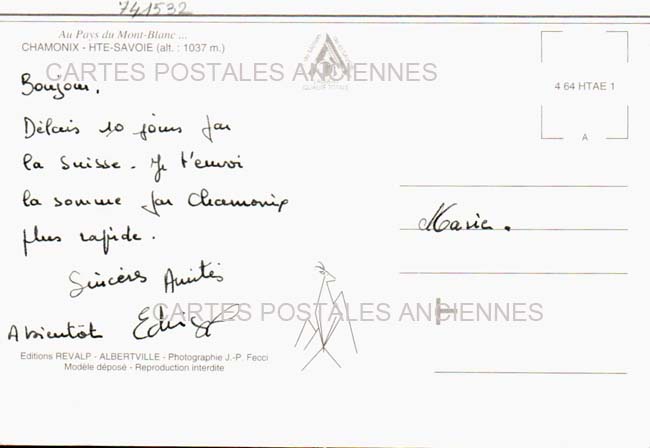 741532
Au Pays du Mont-Blanc ...
CHAMONIX - HTE-SAVOIE (alt. : 1037 m.)
CARTES POSTALES ANCIENNES
QUALITÉ TOTALE
4 64 HTAE 1
A
Bonjour.
Délais 10 jours par
la Suisse. Je t'envoi
la somme par Chamonix
plus rapide.
Marie.
Sincères Amitiés
CARTES POSTALES ANCIENNES
A bientôt
Editions REVALP - ALBERTVILLE - Photographie J.-P. Fecci
Modèle déposé - Reproduction interdite